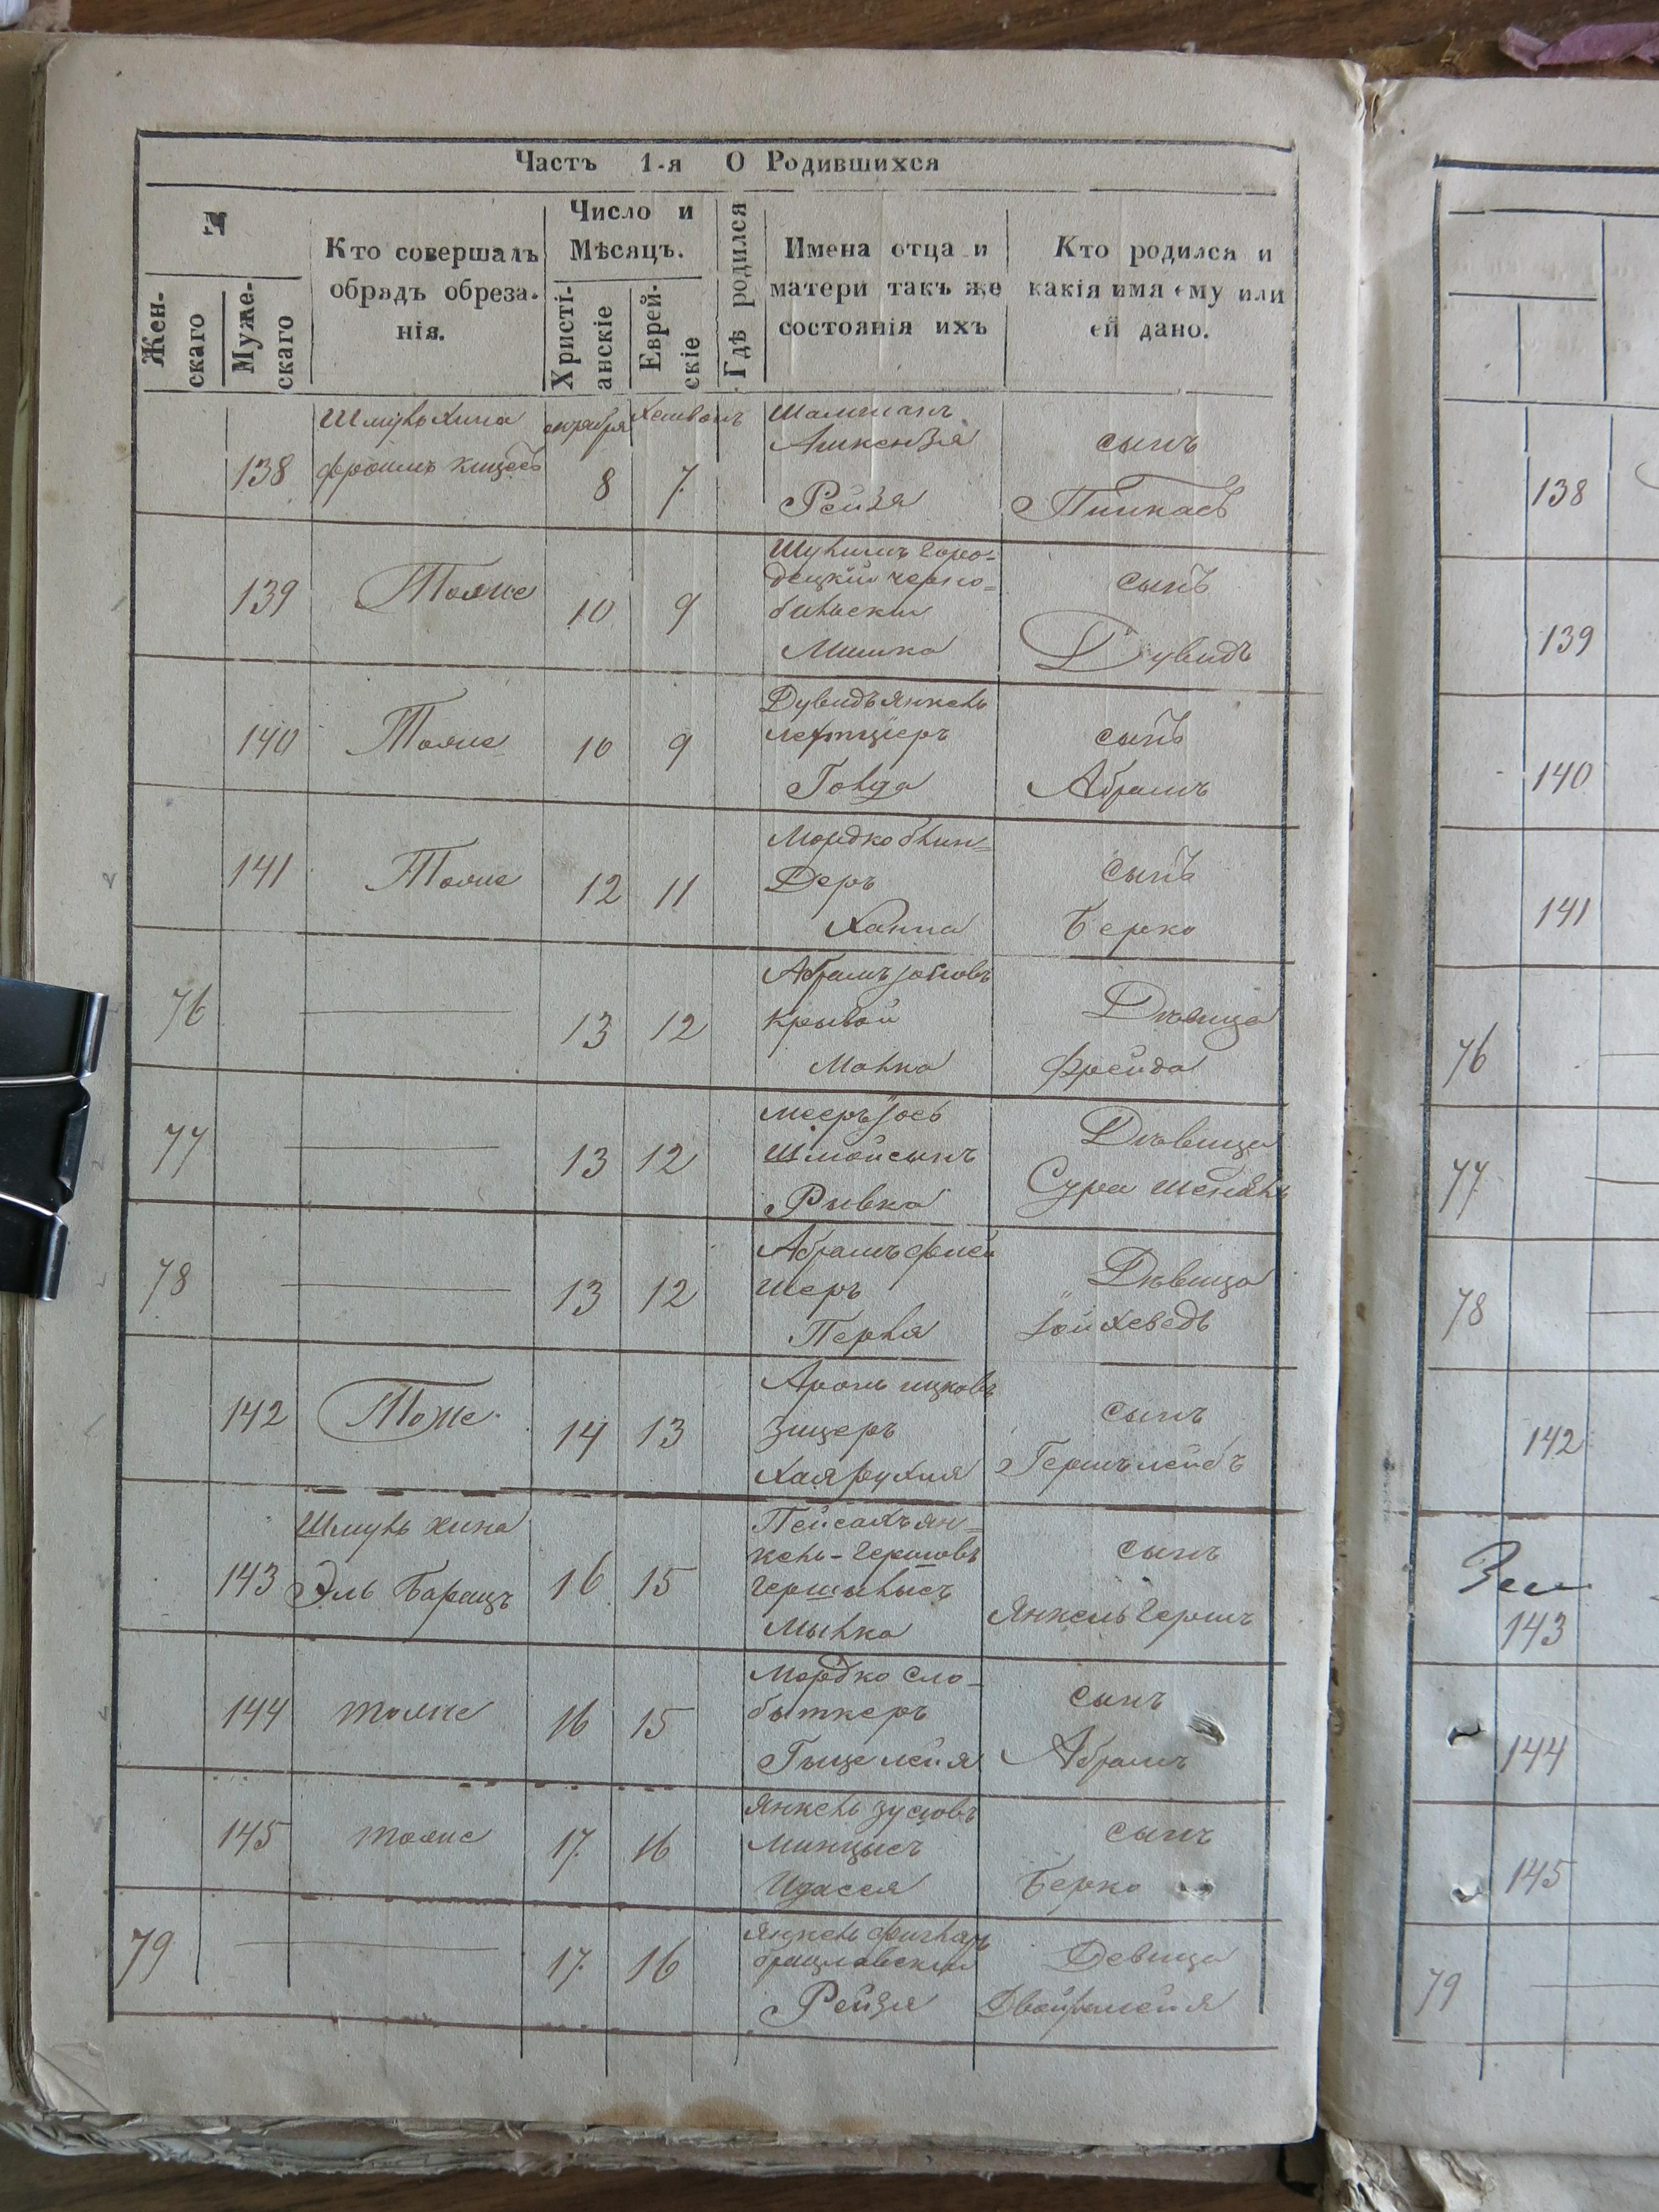 Часть 1-я О Родившихся
№
Жен-
скаго
Муже-
скаго
Кто совершалъ
обрядъ обреза-
нія.
Число и
Мѣсяцъ.
Христі-
анскіе
Еврей-
скіе
Гдѣ родился
Имена отца и
матери такъ же
состоянія ихъ
Кто родился и
какія имя ему или
ей дано.
138
8
7
Рейзя
сынъ
Пинкасъ
139
Тоже
10
9
Городецкій
Мишка
сынъ
Дувидъ
140
Тоже
10
9
Дувидъ Янкель
Голда
сынъ
Абрамъ
141
Тоже
12
11
Мордко Блин=
деръ
Ханна
сынъ
Берко
76
13
12
Абрамъ
Крывой
Малка
Дѣвица
Фрейда
77
13
12
Мееръ Іось
Шмойсынъ
Рывка
Дѣвица
Сура
78
13
12
Абрамъ
шеръ
Перля
Дѣвица
Іойхеведъ
142
Тоже
14
13
Аронъ ицковъ
Зицеръ
Хая рухля
сынъ
Гершъ лейбъ
Шмуль хина
143
Эль Барацъ
16
15
Пейсахъ Ян=
кель-Гершовъ
Малка
сынъ
Янкель Гершъ
144
тоже
16
15
Мордко Сло-
быткеръ
лейя
сынъ
Абрамъ
145
тоже
17
16
Янкель зусіовъ
Минцысъ
сынъ
Берко
79
17
16
Янкель
брацлавскій
Рейзя
Девица
Двойралейя
138
139
140
141
76
77
78
142
143
144
145
79